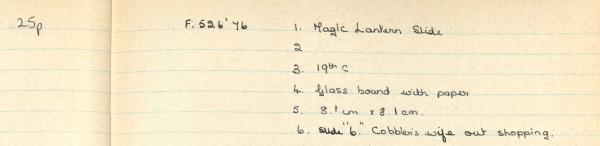 25p F.526'76 1. Magic Lantern Slide
2
3. 19th C
4. Glass bound with paper
5. 8.1 cm x 8.1 cm.
6. Slide "6". Cobbler's wife out shopping.